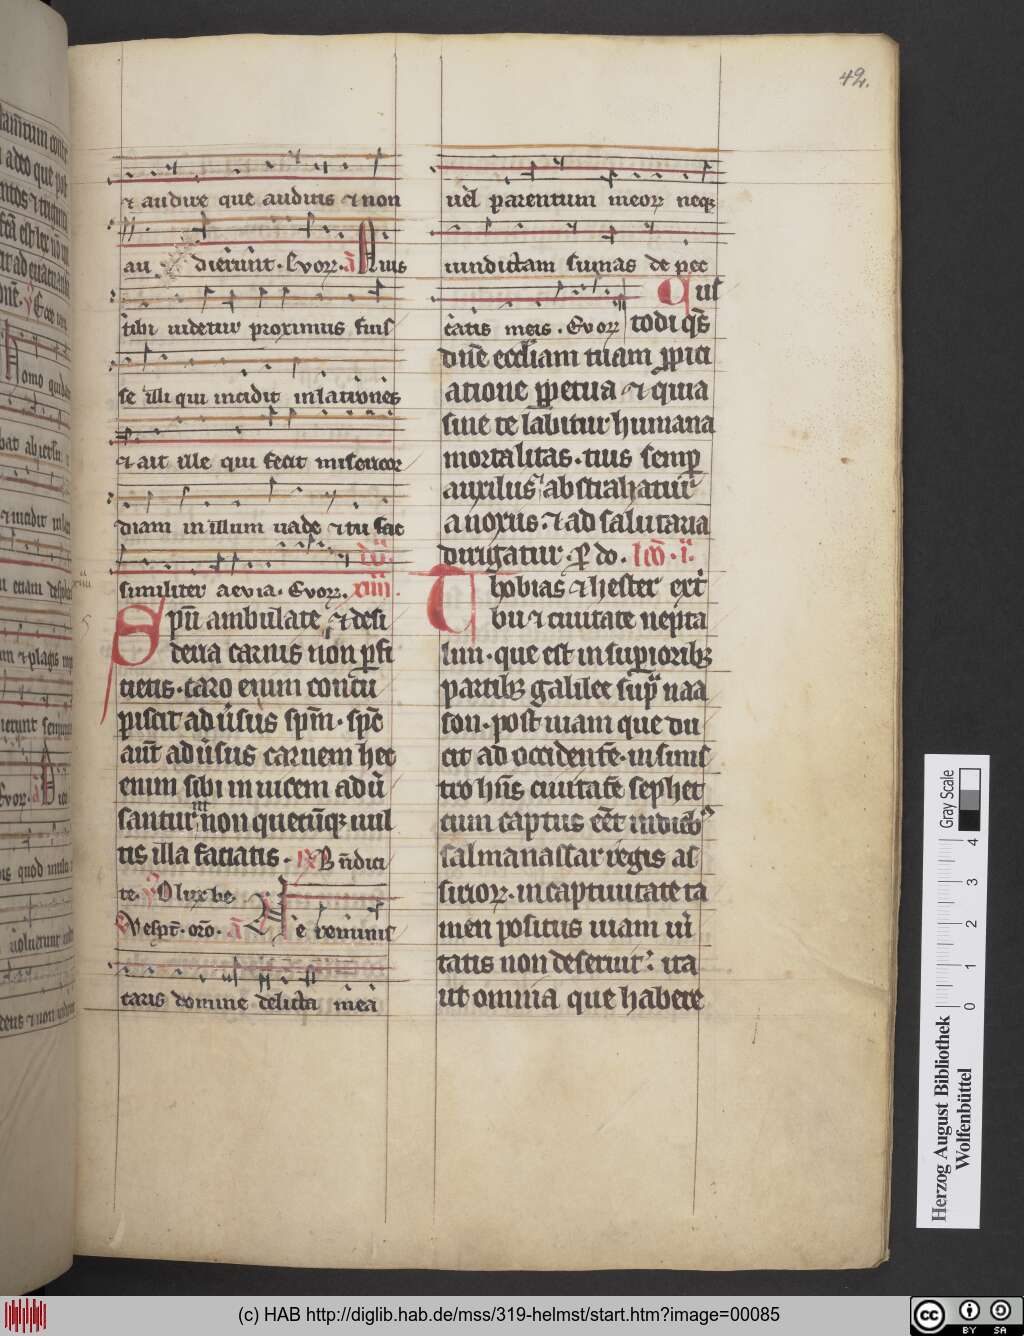 42.
⁊ audire que auditis ⁊ non
au dierunt. Evorꝝ. a Quis
tibi videtur proximus fuis
se illi qui incidit in latrones
⁊ ait ille qui fecit misericor
diam in illum vade ⁊ tu fac
similiter aevia. Evorꝝ. xiiii.
Spū ambulate ⁊ desi
deria carnis non ꝑfi
cietis. caro enim concu
piscit adūsus spm̄. spc̄
aut̄ adūsus carnem hec
enim sibi in uicem adū
santur ut non quecūqꝫ uul
tis illa faciatis. ꝶ B n̄dici
te. ℣ D lux be
Vespt̄. oro. a Ne reminis
caris domine delicta mea
uel parentum meorꝝ neqꝫ
uindictam sumas de pec
catis meis. Evorꝝ Cus
todi qs̄
dn̄e eccl̄iam tuam ꝓpici
atione ꝑpetua ⁊ quia
sine te labitur humana
mortalitas. tuis semꝑ
auxiliis abstrahatur
a noxiis. ⁊ ad salutaria
dirigatur. ꝑ do. lc̄o. i.
Thobias ⁊ hester ex tⁱ
bu ⁊ ciuitate nepta
lim. que est in suꝑioribꝫ
partibꝫ galilee supᵃ naa
son. post uiam que du
cit ad occidentē. in sinis
tro hn̄s ciuitatē sephet
cum captus eēt in dieb
salmanassar regis as
siriorꝝ. in captiuitate ta
men positus uiam ui
tatis non deseruit. ita
ut omnia que habere
Gray Scale
0 1 2 3 4
Herzog August Bibliothek
Wolfenbüttel
(c) HAB http://diglib.hab.de/mss/319-helmst/start.htm?image=00085
cc BY SA